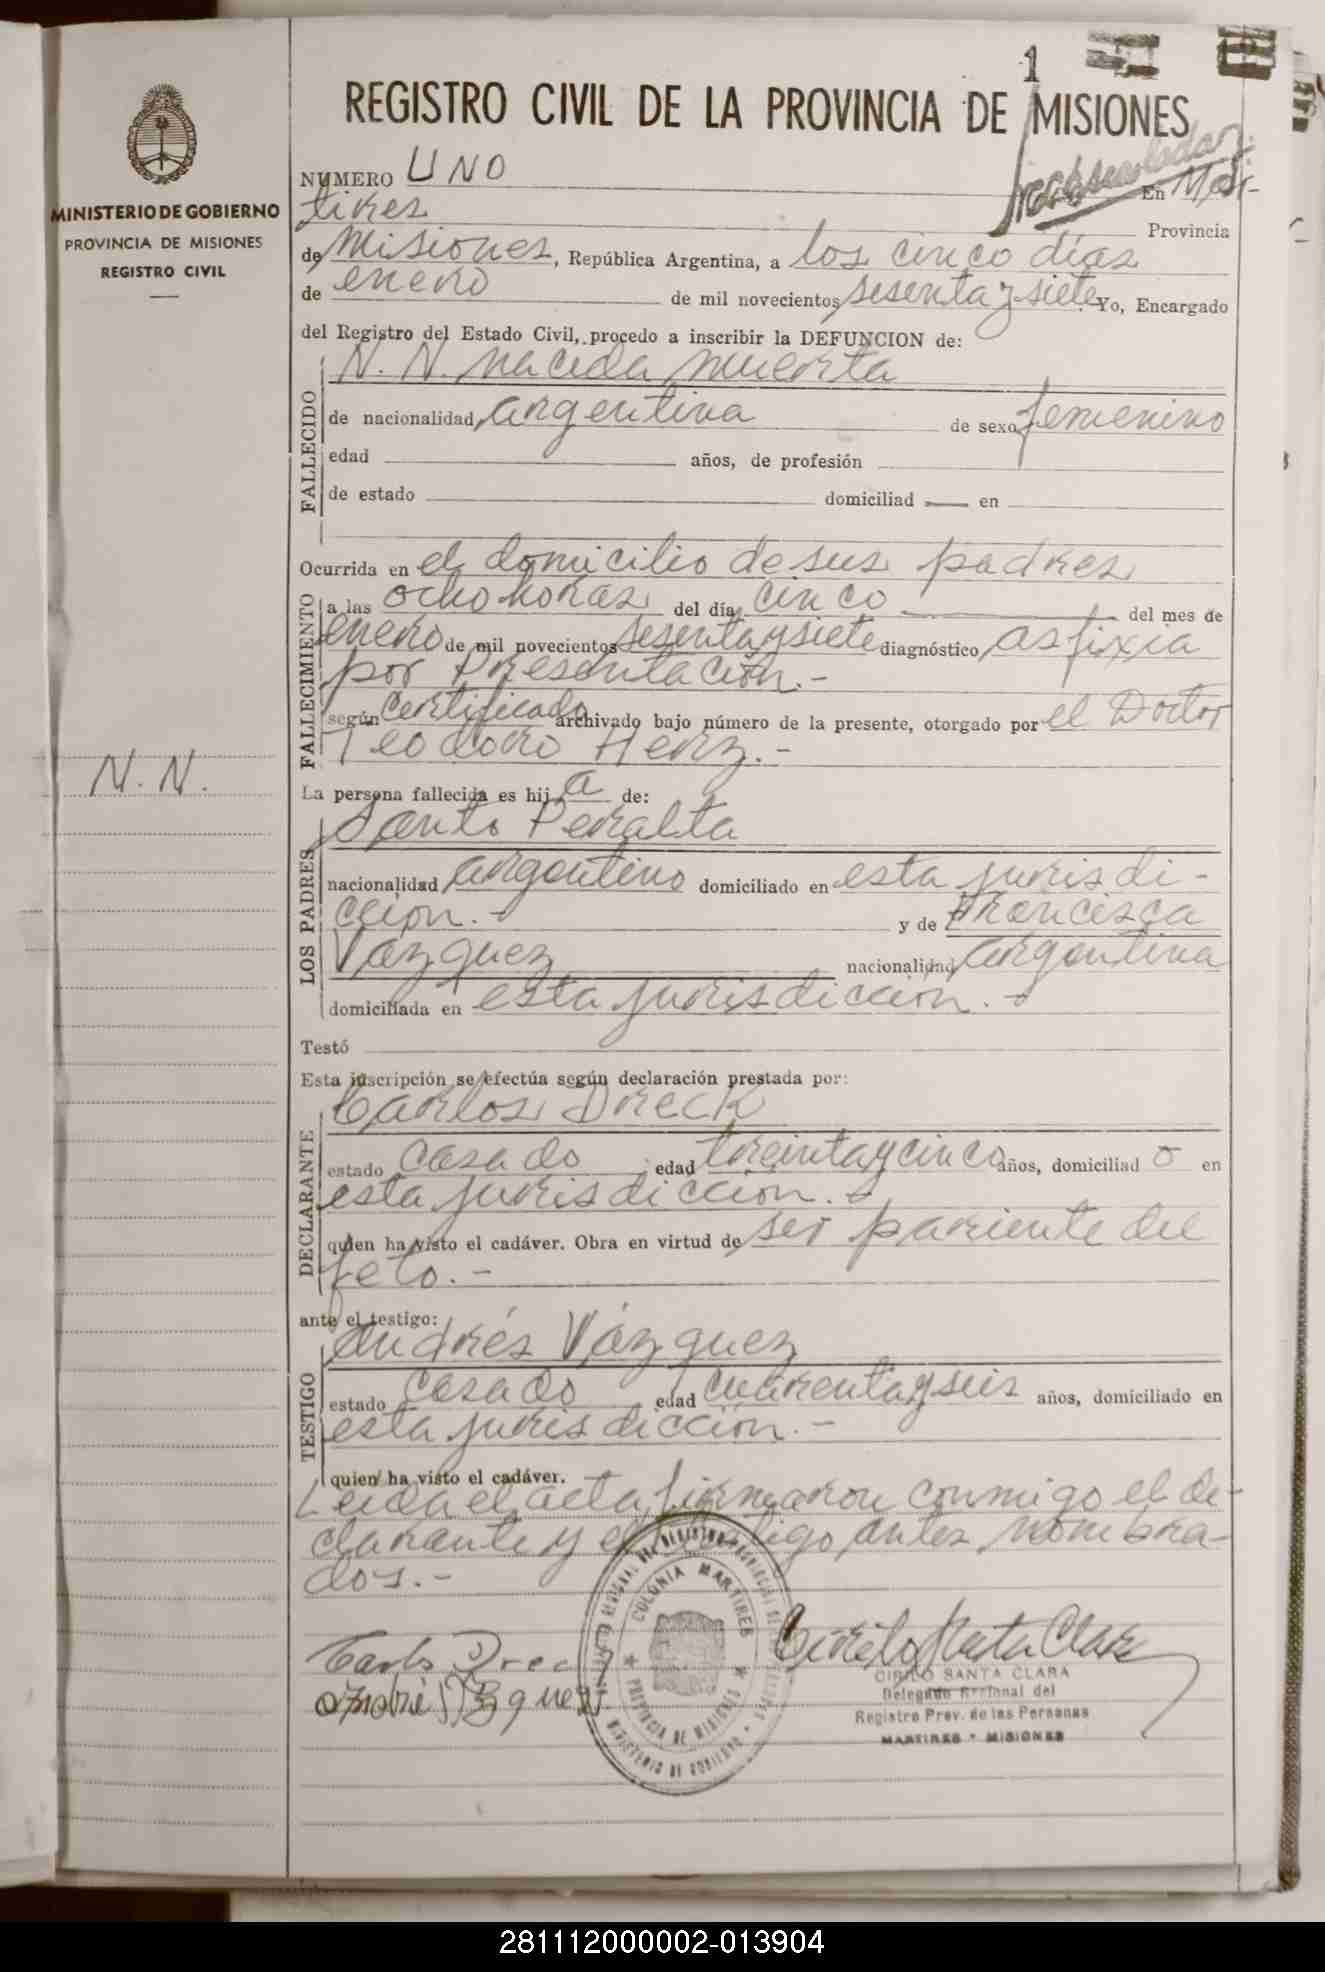 1
REGISTRO CIVIL DE LA PROVINCIA DE MISIONES
MINISTERIO DE GOBIERNO
PROVINCIA DE MISIONES
REGISTRO CIVIL
NUMERO UNO En Már-
tires Provincia
de Misiones, República Argentina, a los cinco días
de enero de mil novecientos sesenta y siete Yo, Encargado
del Registro del Estado Civil, procedo a inscribir la DEFUNCION de:
N. N. nacida muerta
FALLECIDO
de nacionalidad argentina de sexo femenino
edad años, de profesión
de estado domiciliad — en
Ocurrida en el domicilio de sus padres
FALLECIMIENTO
a las ocho horas del día cinco del mes de
enero de mil novecientos sesenta y siete diagnóstico asfixia
por presentación.-
según certificado archivado bajo número de la presente, otorgado por el Doctor
Teodoro Henz.-
N. N.
La persona fallecida es hija de:
LOS PADRES
Santo Peralta
nacionalidad argentino domiciliado en esta jurisdi-
cción.- y de Francisca
Vázquez nacionalidad argentina
domiciliada en esta jurisdicción.-
Testó
Esta inscripción se efectúa según declaración prestada por:
DECLARANTE
Carlos Dreck
estado casado edad treinta y cinco años, domiciliado en
esta jurisdicción.-
quien ha visto el cadáver. Obra en virtud de ser pariente del
feto.-
ante el testigo:
TESTIGO
Andrés Vázquez
estado casado edad cuarenta y seis años, domiciliado en
esta jurisdicción.-
quien ha visto el cadáver.
Leida el acta, firmaron conmigo el de-
clarante y el testigo antes nombra-
dos.-
COLONIA MARTIRES
PROVINCIA DE MISIONES
MINISTERIO DE GOBIERNO
Carlos Dreck
Andrés Vázquez
Cirilo Santa Clara
CIRILO SANTA CLARA
Delegado Regional del
Registro Prov. de las Personas
MARTIRES - MISIONES
281112000002-013904